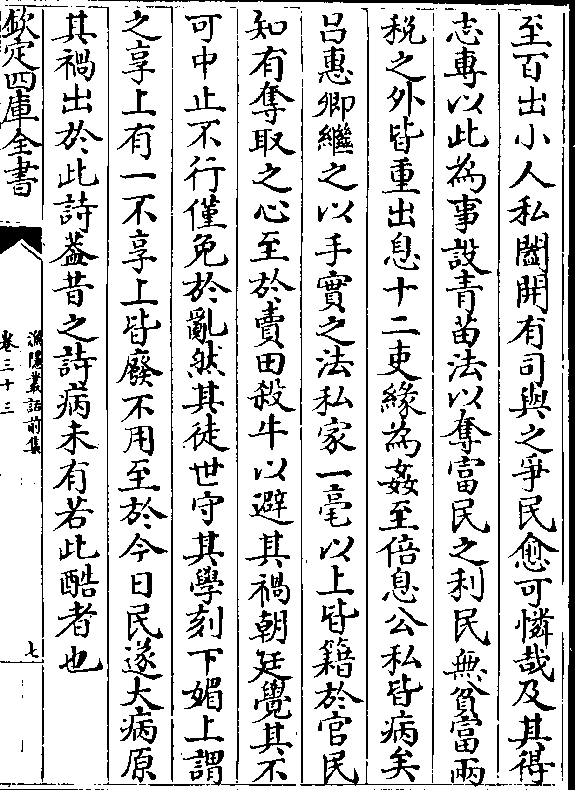 至百出小人私闔開有司與之爭民愈可憐哉及其得
志專以此為事設青苗法以奪富民之利民無貧富兩
税之外皆重出息十二吏緣為姦至倍息公私皆病矣
吕惠卿繼之以手實之法私家一毫以上皆籍於官民
知有奪取之心至於賣田殺牛以避其禍朝廷覺其不
可中止不行僅免於亂然其徒世守其學刻下媚上謂
之享上有一不享上皆廢不用至於今日民遂大病原
其禍出於此詩葢昔之詩病未有若此酷者也
欽定四庫全書
漁隱叢話前集
卷三十三
七